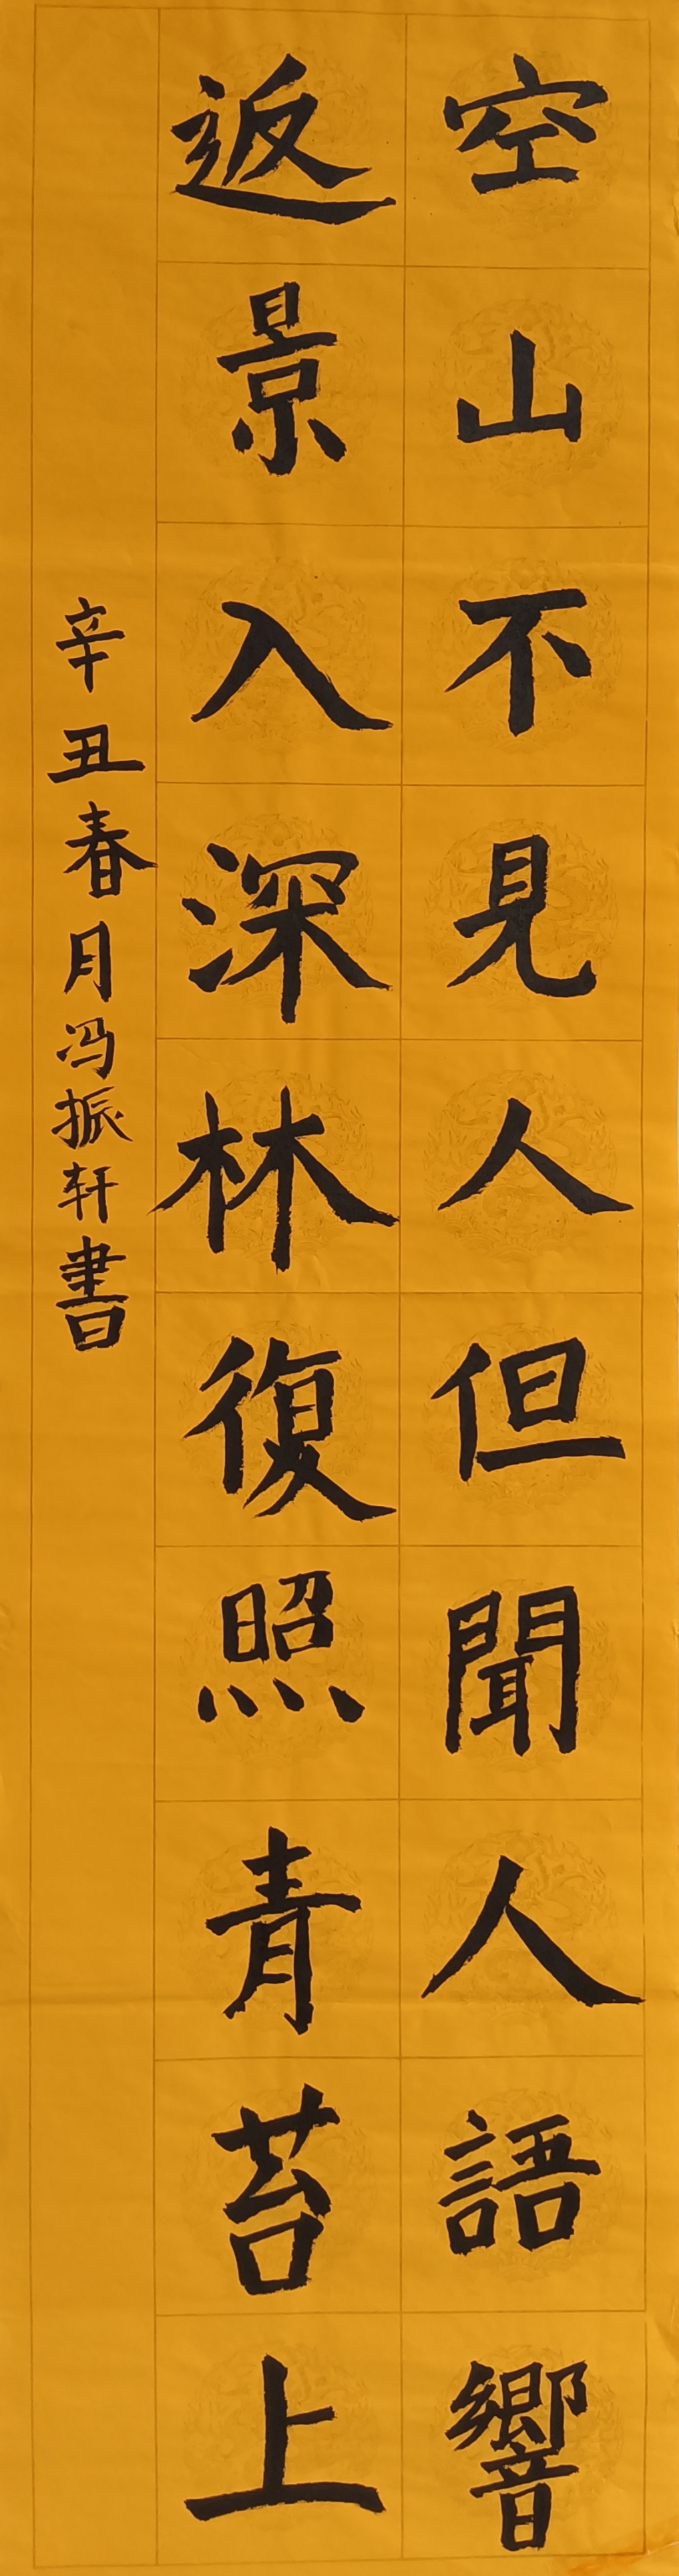 空山不見人但聞人語響
返景入深林復照青苔上
辛丑春月冯振轩書